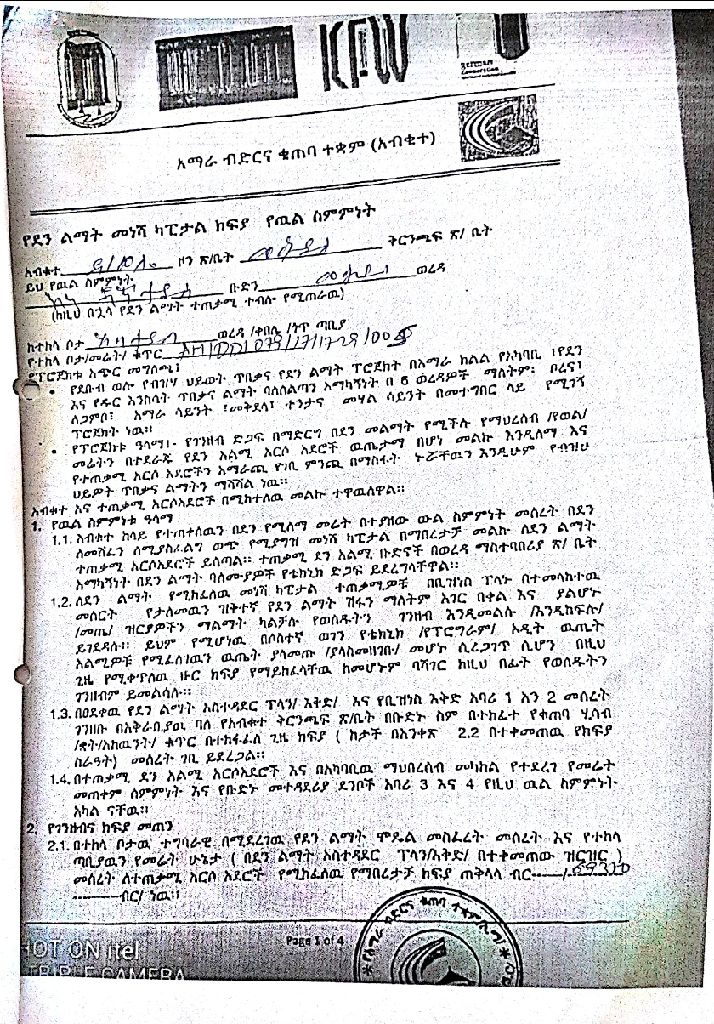 KFW
አማራ ብድርና ቁጠባ ተቋም (አብቁተ)
የደን ልማት መነሻ ካፒታል ክፍያ የዉል ስምምነት
አብቁተ ዞን ጽ/ቤት ቅርንጫፍ ጽ/ ቤት
ይህ የዉል ስምምነት ቡድን ወረዳ
(ከዚህ በኋላ የደን ልማት ተጠታሚ ተብሎ የሚጠራዉ)
ከተከላ ቦታ ወረዳ /ቀበሌ/ ንጥ ጣቢያ
የተከላ ቦታ/መሬት/ ቁጥር
የፕሮጀክቱ አጭር መግለጫ፤
• የደቡብ ወሎ የብዝሃ ህይወት ጥበቃና የደን ልማት ፕሮጀክት በአማራ ክልል የአካባቢ ፣የደን
እና የዱር እንስሳት ጥበቃና ልማት ባለስልጣን አማካኝነት በ 6 ወረዳዎች ማለትም፡ ቦረና፤
ለጋምቦ፣ አማራ ሳይንት ፣መቅደላ፣ ተንታና መሃል ሳይንት በመተግበር ላይ የሚገኝ
ፕሮጀክት ነዉ።
• የፕሮጀክቱ ዓላማ፤- የገንዘብ ድጋፍ በማድርግ በደን መልማት የሚችሉ የማህረሰብ /የወል/
መሬትን በተደራጁ የደን አልሚ አርሶ አደሮች ዉጤታማ በሆነ መልኩ እንዲለማ እና
የተጠቃሚ አርሶ አደሮችን አማራጭ የገቢ ምንጫ በማስፋት ኑሯቸዉን እንዲሁም የብዝሀ
ህይዎት ጥበቃና ልማትን ማሻሻል ነዉ።
አብቁተ እና ተጠቃሚ አርሶአደሮች በሚከተለዉ መልኩ ተዋዉለዋል።
1. የዉል ስምምነቱ ዓላማ
1.1. አብቁተ ከላይ የተጠቀሰዉን በደን የሚለማ መሬት በተያዘው ውል ስምምነት መሰረት በደን
ለመሸፈን ለሚያስፈልግ ወጭ የሚያግዝ መነሻ ካፒታል በማበረታቻ መልኩ ለደን ልማት
ተጠቃሚ አርሶአደሮች ይሰጣል። ተጠቃሚ ደን አልሚ ቡድኖች በወረዳ ማስተባበሪያ ጽ/ ቤት
አማካኝነት በደን ልማት ባለሙያዎች የቴክኒክ ድጋፍ ይደረግላቸዋል።
1.2. ለደን ልማት የሚከፈለዉ መነሻ ካፒታል ተጠቃሚዎቹ በቢዝነስ ፕላኑ በተመላከተዉ
መሰረት የታለመዉን ዝቅተኛ የደን ልማት ሽፋን ማለትም አገር በቀል እና ያልሆኑ
/መጤ/ ዝርያዎችን ማልማት ካልቻሉ የወሰዱትን ገንዘብ እንዲመልሱ /እንዲከፍሉ/
ይገደዳሉ፤ ይህም የሚሆነዉ በሶስተኛ ወገን የቴክኒክ /የፕሮግራም/ ኦዲት ዉጤት
አልሚዎቹ የሚፈለገዉን ዉጤት ያላመጡ /ያላስመዘገቡ/ መሆኑ ሲረጋገጥ ሲሆን በዚህ
ጊዜ የሚቀጥለዉ ዙር ክፍያ የማይከፈላቸዉ ከመሆኑም ባሻገር ከዚህ በፊት የወሰዱትን
ገንዘብም ይመልሳሉ።
1.3. በፀደቀዉ የደን ልማት አስተዳደር ፕላን/ እቅድ/ እና የቢዝነስ እቅድ አባሪ 1 እን 2 መሰረት
ገንዘቡ በአቅራቢያዉ ባለ የአብቁተ ቅርንጫፍ ጽ/ቤት በቡድኑ ስም በተከፈተ የቀጠባ ሂሳብ
ቁጥር በተከፋፈለ ጊዜ ክፍያ ( ከታች በአንቀጽ 2.2 በተቀመጠዉ የክፍያ
ስራዓት) መሰረት ገቢ ይደረጋል።
1.4. በተጠቃሚ ደን አልሚ አርሶአደሮች እና በአካባቢዉ ማህበረሰብ መካከል የተደረገ የመሬት
መጠቀም ስምምነት እና የቡድኑ መተዳደሪያ ደንቦች አባሪ 3 እና 4 የዚህ ዉል ስምምነት
አካል ናቸዉ።
2. የገንዘብና ከፍያ መጠን
2.1. በተከላ ቦታዉ ተግባራዊ በሚደረገዉ የደን ልማት ሞዴል መስፈረት መሰረት እና የተከላ
ጣቢያዉን የመሬት ሁኔታ ( በደን ልማት አስተዳደር ፕላን/እቅድ/ በተቀመጠው ዝርዝር )
መሰረት ለተጠቃሚ አርሶ አደሮች የሚከፈለዉ የማበረታቻ ክፍያ ጠቅላላ ብር------/
------------ብር/ ነዉ።
Page 1 of 4
HOT ON itel
TRIPLE CAMERA